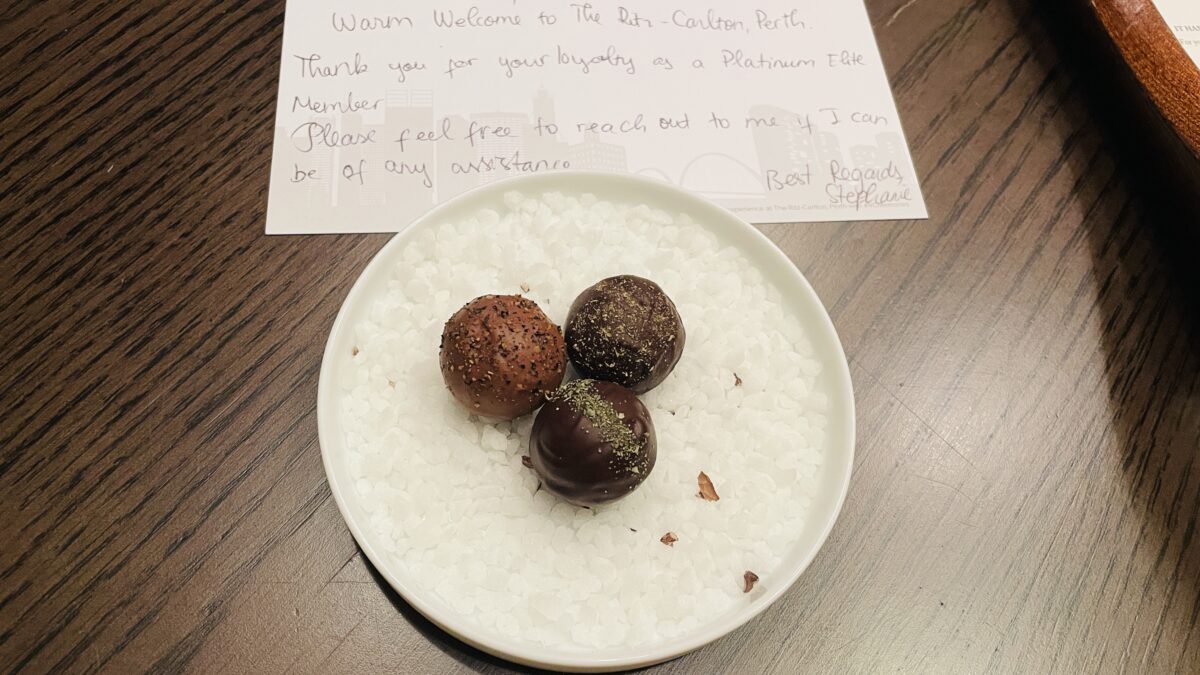 Warm Welcome to The Ritz-Carlton, Perth.
Thank you for your loyalty as a Platinum Elite
Member
Please feel free to reach out to me if I can
be of any assistance
Best Regards,
Stephanie
experience at The Ritz-Carlton, Perth